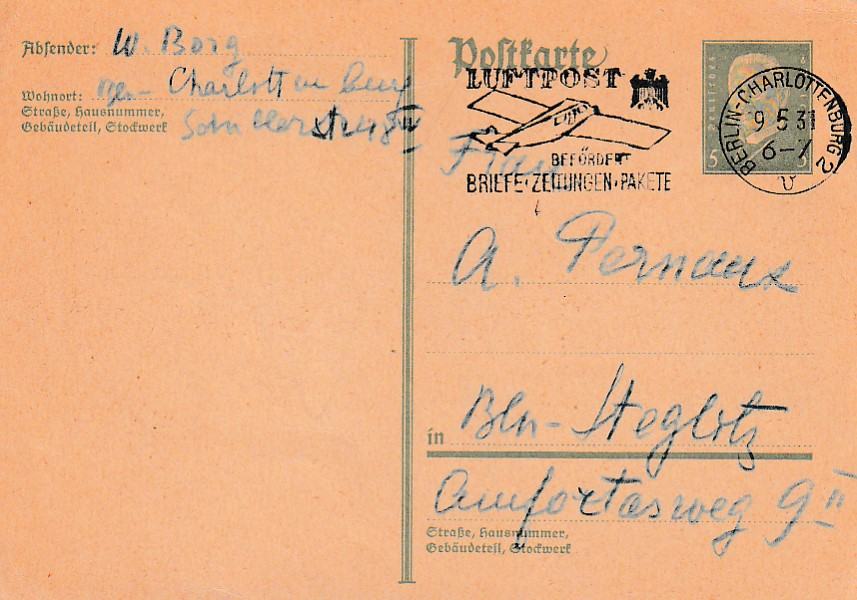 Absender: W. Borg
Wohnort: Bln- Charlottenburg
Straße, Hausnummer,
Gebäudeteil, Stockwerk
Postkarte
LUFTPOST
BEFÖRDERT
BRIEFE·ZEITUNGEN·PAKETE
5 5
BERLIN-CHARLOTTENBURG 2
9 5 31
6-7
v
Frau
A.
in Bln-Steglitz
Amfortasweg 9 II
Straße, Hausnummer,
Gebäudeteil, Stockwerk